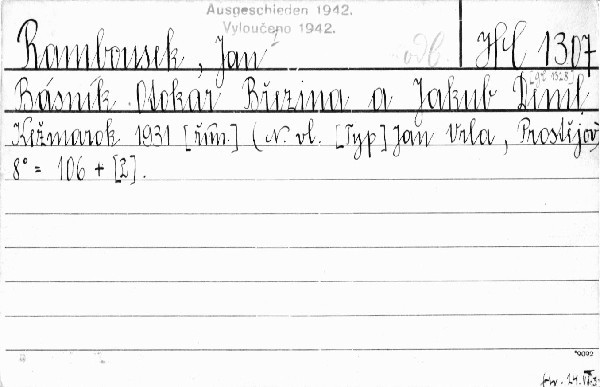 Ausgeschieden 1942.
Vyloučeno 1942.
Rambousek, Jan
odb.
Básník Otokar Březina a Jakub Deml
Kežmarok 1931 [řím.] (N. vl. [Typ] Jan Vrla, Prostějov)
8° = 106 + [2].
*9092